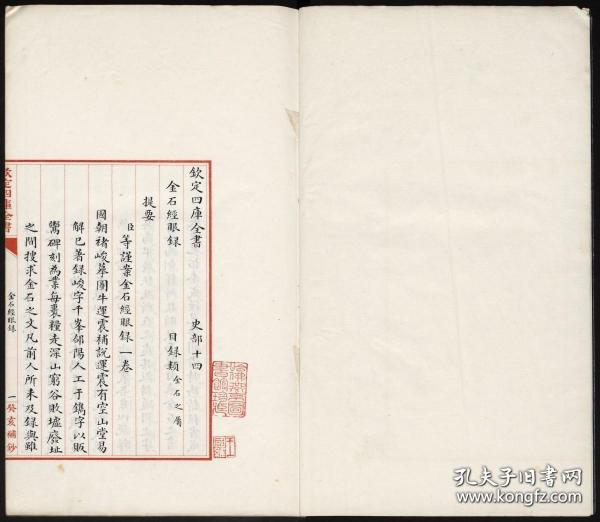 欽定四庫全書　史部十四
金石經眼録　目録類 金石之屬
提要
臣等謹案金石經眼録一卷
國朝褚峻摹圖牛運震補説運震有空山堂易
解已著録峻字千峯郃陽人工于鐫字以販
鬻碑刻為業每裹糧走深山窮谷敗墟廢址
之間搜求金石之文凡前人所未及録與雖
欽定四庫全書
金石經眼録
一 癸亥補鈔
孔夫子旧书网
www.kongfz.com